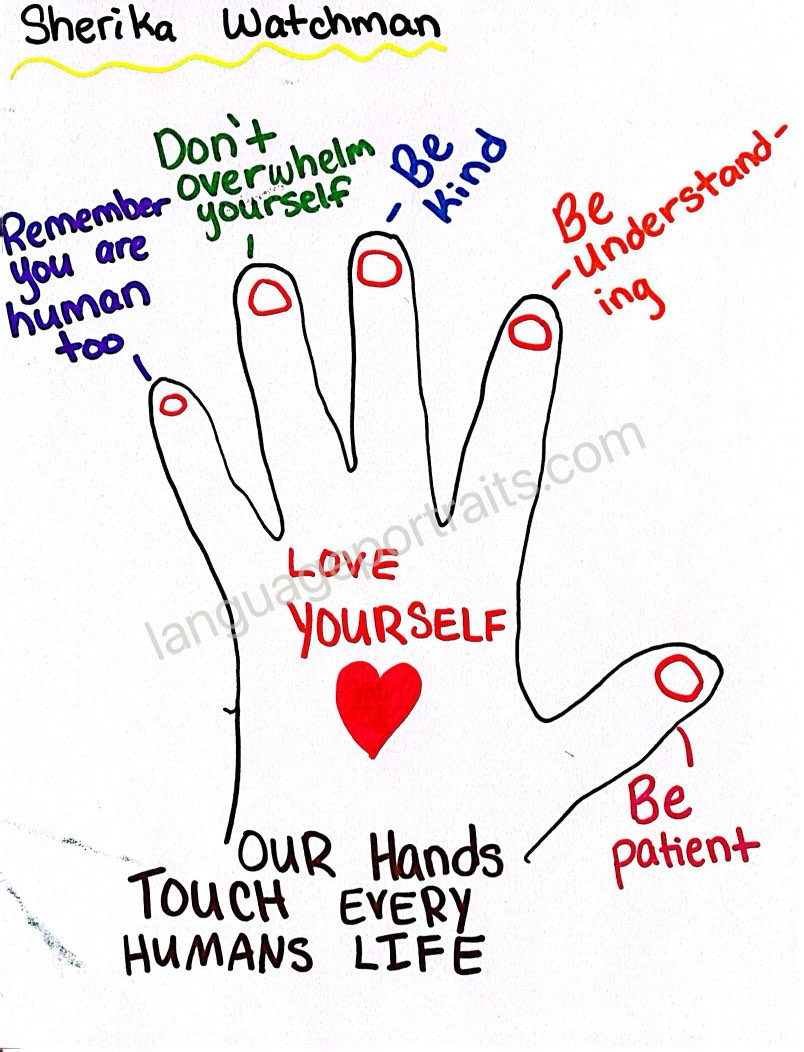 Sherika Watchman
Don't
overwhelm
yourself
- Be
Kind
Remember
you are
human
too
Be
-understand-
ing
LOVE
YOURSELF
Be
patient
OUR Hands
TOUCH EVERY
HUMANS LIFE
languageportraits.com